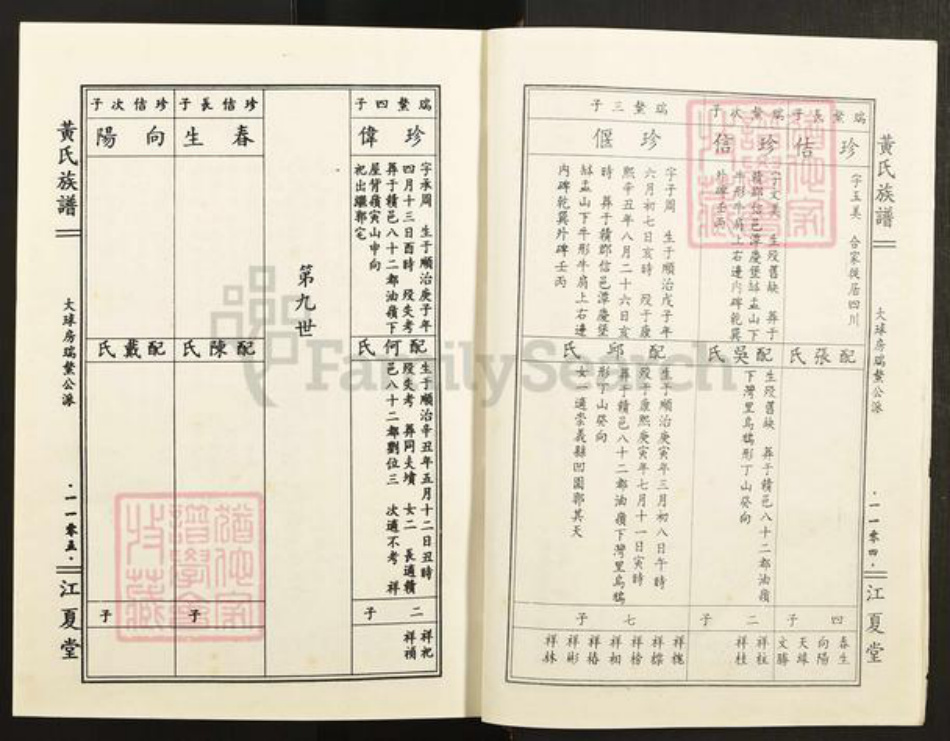 黃氏族譜
大球房瑞鰲公派
·一一零四·
江夏堂
瑞鰲長子
珍佶
字玉美 合家徙居四川
配張氏
四子
春生
向陽
天球
文勝
瑞鰲次子
珍信
字文美 生歿舊缺 葬于
贛邑八十二都油嶺
配吳氏
生歿舊缺 葬于贛邑八十二都油嶺
下灣里烏鴉形丁山癸向
二子
祥柱
祥桂
瑞鰲三子
珍偃
字子周 生于順治戊子年
六月初七日亥時 歿于康
熙辛丑年八月二十六日亥
時 葬于贛郡信邑潭慶堡
缽盂山下牛形牛肩上右邊
內碑乾巽外碑壬丙
配邱氏
生于順治庚寅年三月初八日午時
歿于康熙庚寅年七月十一日寅時
葬于贛邑八十二都油嶺下灣里烏鴉
形丁山癸向
女一適崇義縣凹園郭其天
七子
祥槐
祥檪
祥榜
祥相
祥椿
祥彬
祥林
瑞鰲四子
珍偉
字承周 生于順治庚子年
四月十三日酉時 歿失考
葬于贛邑八十二都油嶺下
屋背嶺寅山申向
祀出繼郭宅
配何氏
生于順治辛丑年五月十二日丑時
歿失考 葬同夫墳 女二 長適贛
邑八十二都劉位三 次適不考 祥
二子
祥祀
祥禎
第九世
珍佶長子
春生
配陳氏
子
珍佶次子
向陽
配戴氏
子
黃氏族譜
大球房瑞鰲公派
·一一零五·
江夏堂
FamilySearch